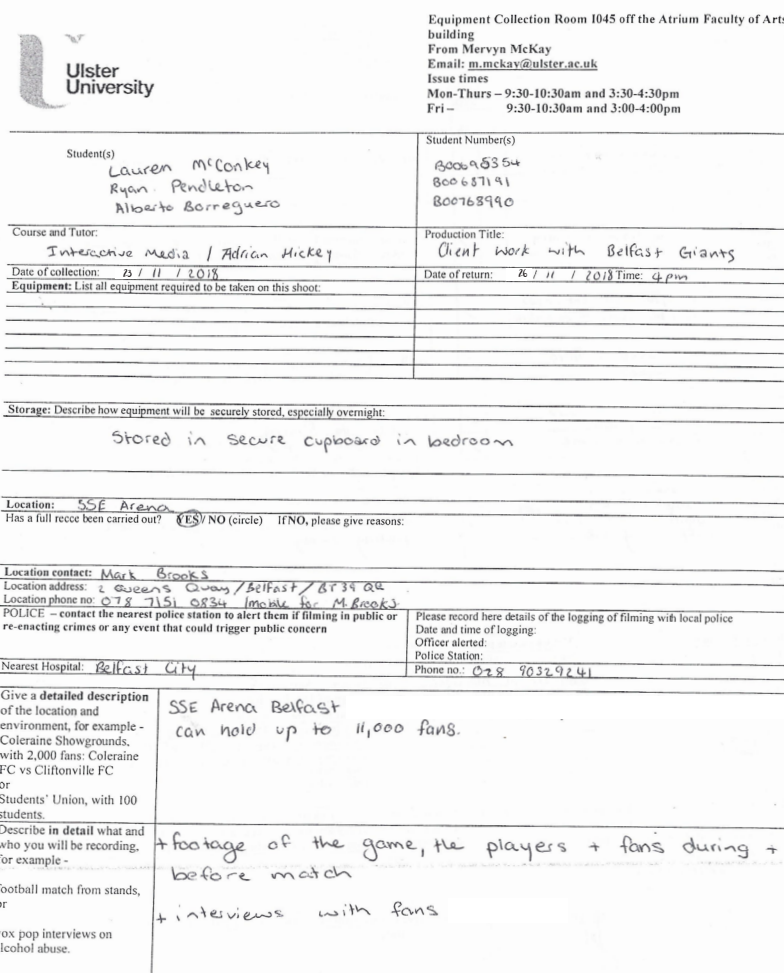 Equipment Collection Room 1045 off the Atrium Faculty of Arts
building
From Mervyn McKay
Email: m.mckay@ulster.ac.uk
Issue times
Mon-Thurs – 9:30-10:30am and 3:30-4:30pm
Fri – 9:30-10:30am and 3:00-4:00pm
Ulster
University
Student(s)
Lauren McConkey
Ryan Pendleton
Alberto Borreguero
Student Number(s)
B00695354
B00687191
B00768990
Course and Tutor:
Interactive Media / Adrian Hickey
Production Title:
Client Work with Belfast Giants
Date of collection: 23 / 11 / 2018
Date of return: 26 / 11 / 2018 Time: 4pm
Equipment: List all equipment required to be taken on this shoot:
Storage: Describe how equipment will be securely stored, especially overnight:
Stored in secure cupboard in bedroom
Location: SSE Arena
Has a full recce been carried out? YES / NO (circle) If NO, please give reasons:
Location contact: Mark Brooks
Location address: 2 Queens Quay / Belfast / BT39 QQ
Location phone no: 078 7151 0834 (mobile for M.Brooks)
POLICE – contact the nearest police station to alert them if filming in public or
re-enacting crimes or any event that could trigger public concern
Please record here details of the logging of filming with local police
Date and time of logging:
Officer alerted:
Police Station:
Nearest Hospital: Belfast City
Phone no.: 028 90329241
Give a detailed description
of the location and
environment, for example -
Coleraine Showgrounds,
with 2,000 fans: Coleraine
FC vs Cliftonville FC
or
Students' Union, with 100
students.
SSE Arena Belfast
can hold up to 11,000 fans.
Describe in detail what and
who you will be recording,
for example -
football match from stands,
or
vox pop interviews on
alcohol abuse.
+ footage of the game, the players + fans during +
before match
+ interviews with fans